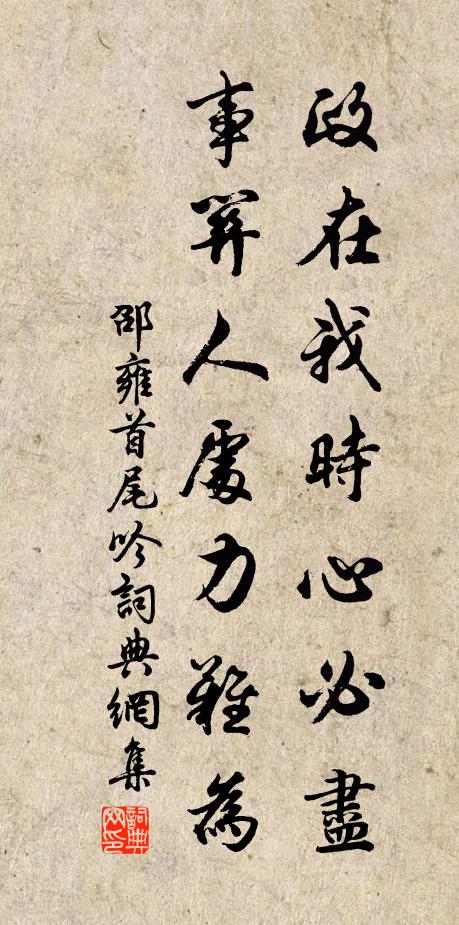 政在我時心必盡
事關人處力難為
邵雍首尾吟詞典網集
詞典
网印